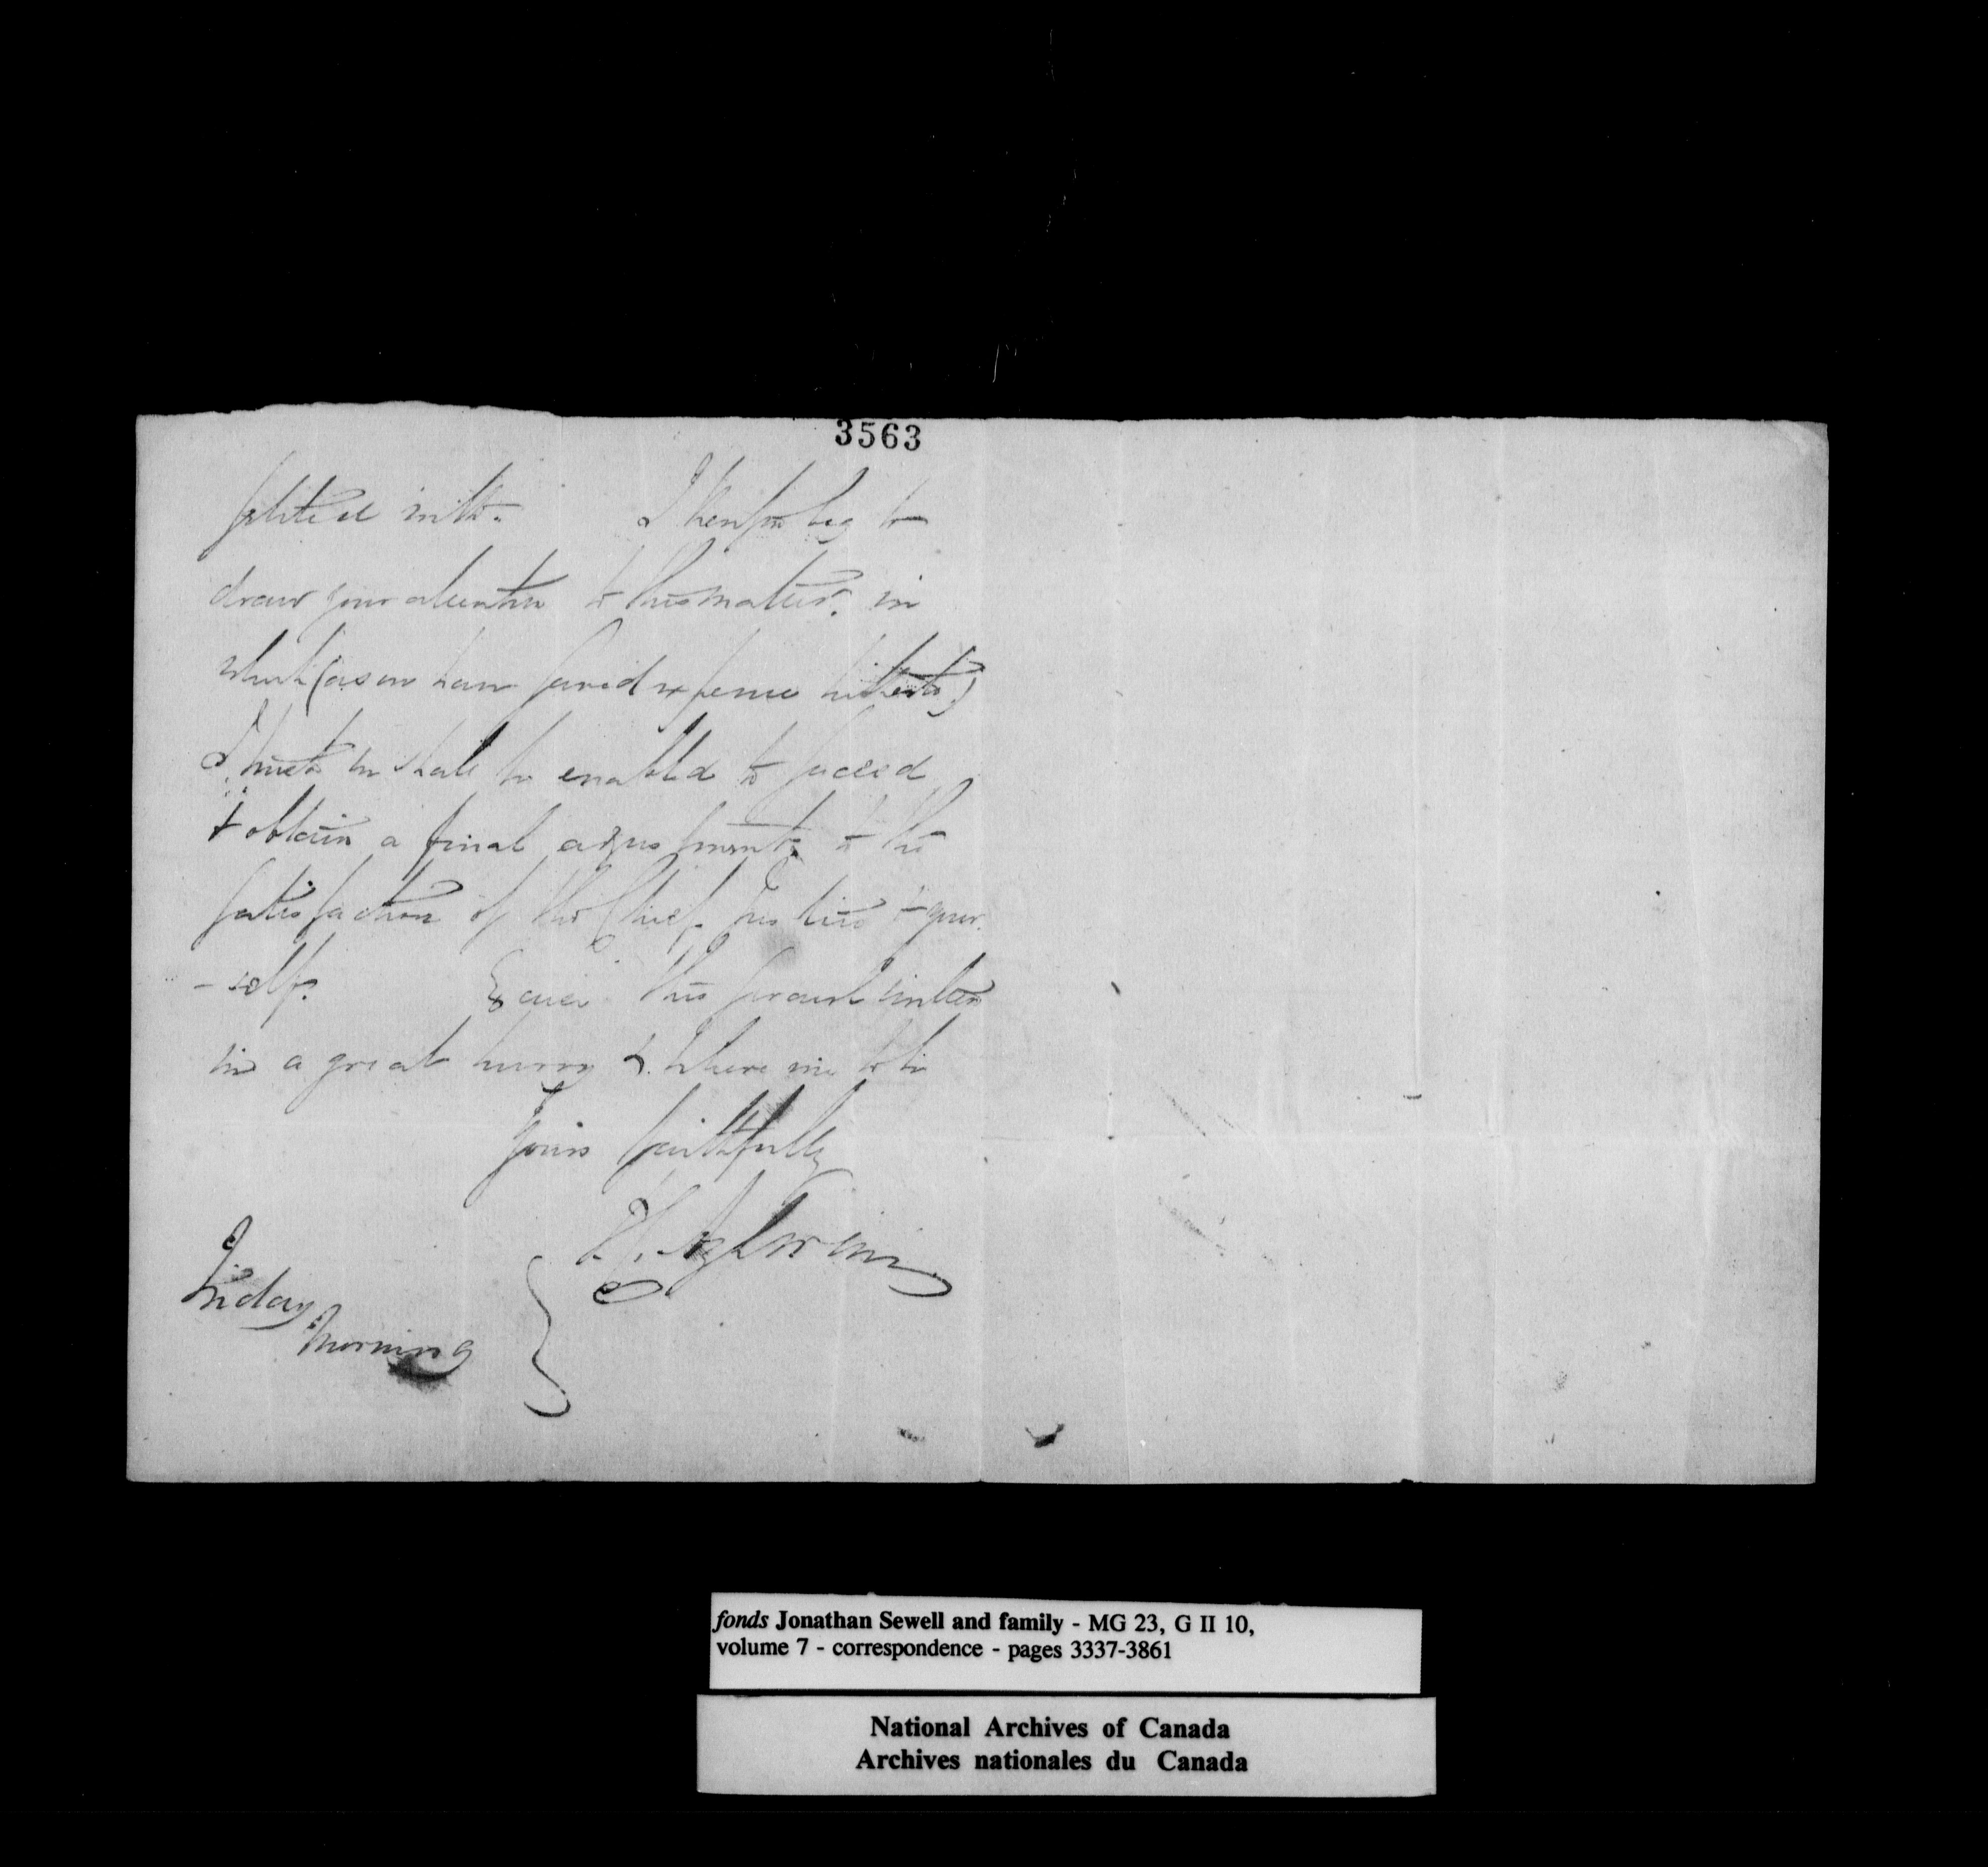 3563
I therefore beg to
draw your attention to this matter. in
which (as we have saved expense hitherto)
I trust we shall be enabled to proceed
& obtain a final adjustment, to the
satisfaction of the Chief Justice & your
-self. Excuse this scrawl written
in a great hurry & believe me to be
Yours faithfully
Aylwin
Friday
Morning
fonds Jonathan Sewell and family - MG 23, G II 10,
volume 7 - correspondence - pages 3337-3861
National Archives of Canada
Archives nationales du Canada